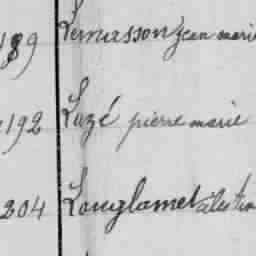 189 Lemasson jean marie
192 Luzé pierre marie
204 Louglamet